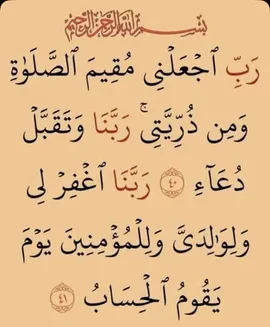 بِسْمِ ٱللَّهِ ٱلرَّحْمَٰنِ ٱلرَّحِيمِ
رَبِّ ٱجْعَلْنِى مُقِيمَ ٱلصَّلَوٰةِ
وَمِن ذُرِّيَّتِى ۚ رَبَّنَا وَتَقَبَّلْ
دُعَآءِ ٤٠ رَبَّنَا ٱغْفِرْ لِى
وَلِوَٰلِدَىَّ وَلِلْمُؤْمِنِينَ يَوْمَ
يَقُومُ ٱلْحِسَابُ ٤١